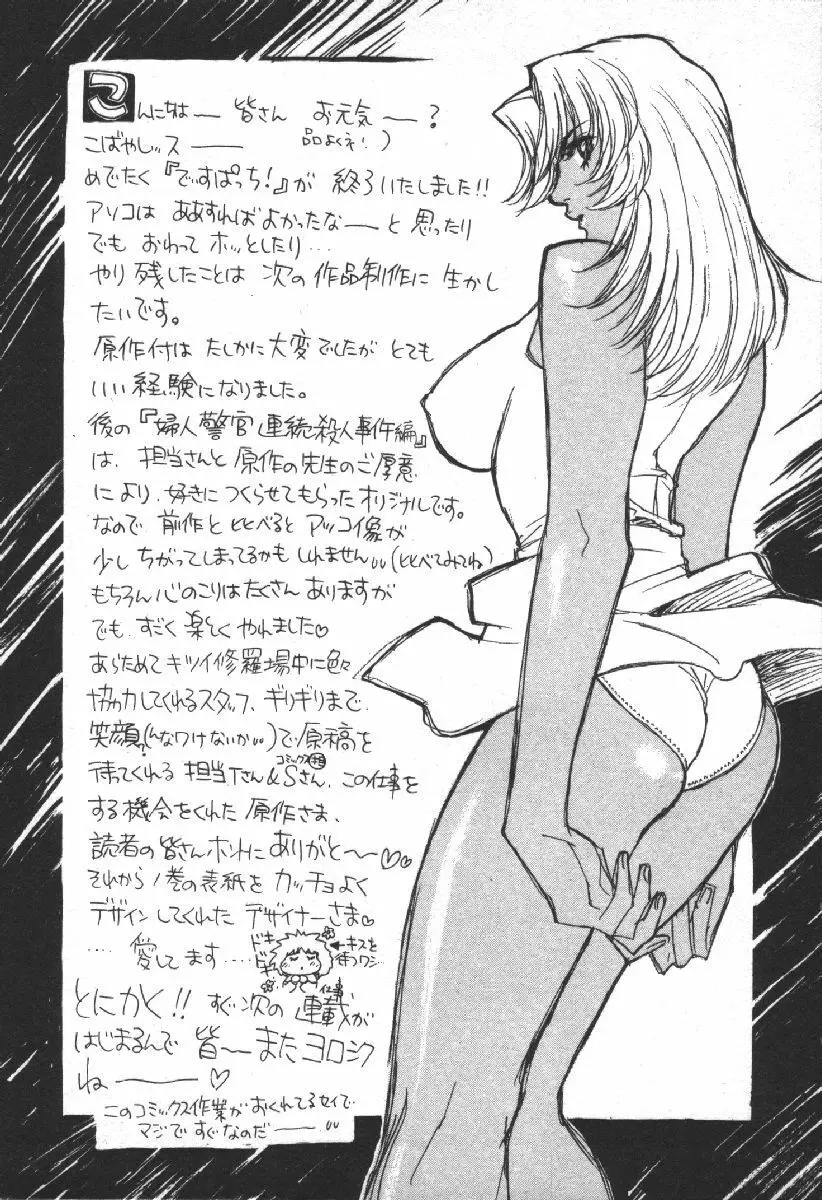 こんにちはー 皆さん お元気ー?
こばやしッスー 品よくネ!)
めでたく『でぃすぱっち!』が 終了いたしました!!
アソコは ああすればよかったなーと 思ったり
でも おわって ホッとしたり…
やり残したことは 次の作品制作に 生かし
たいです。
原作付は たしかに大変でしたが とても
いい経験になりました。
後の『婦人警官連続殺人事件編』
は、担当さんと 原作の先生のご厚意
により、好きに つくらせてもらった オリジナルです。
なので 前作と 比べると アッコイ象が
少し ちがってしまってるかも しれません(比べてみてね)
もちろん 心のこりはたくさん ありますが
でも、すごく 楽しく やれました♡
あらためて キツイ修羅場中に色々
協力してくれるスタッフ、ギリギリまで
笑顔?(んなワケないか)で原稿を
コミックス担当
待ってくれる 担当Tさん&Sさん、この仕事を
する機会をくれた 原作さま、
読者の皆さん ホントに ありがと〜♡♡
それから 1巻の表紙を カッチョよく
デザインしてくれた デザイナーさま♡
…. 愛してます….
ドキ
ドキ
←キスを
待つワシ…
仕事
とにかく!! すぐ次の 連載が
はじまるんで 皆〜 また ヨロシク
ねー♡
このコミックス作業が おくれてるセイで
マジですぐなのだー